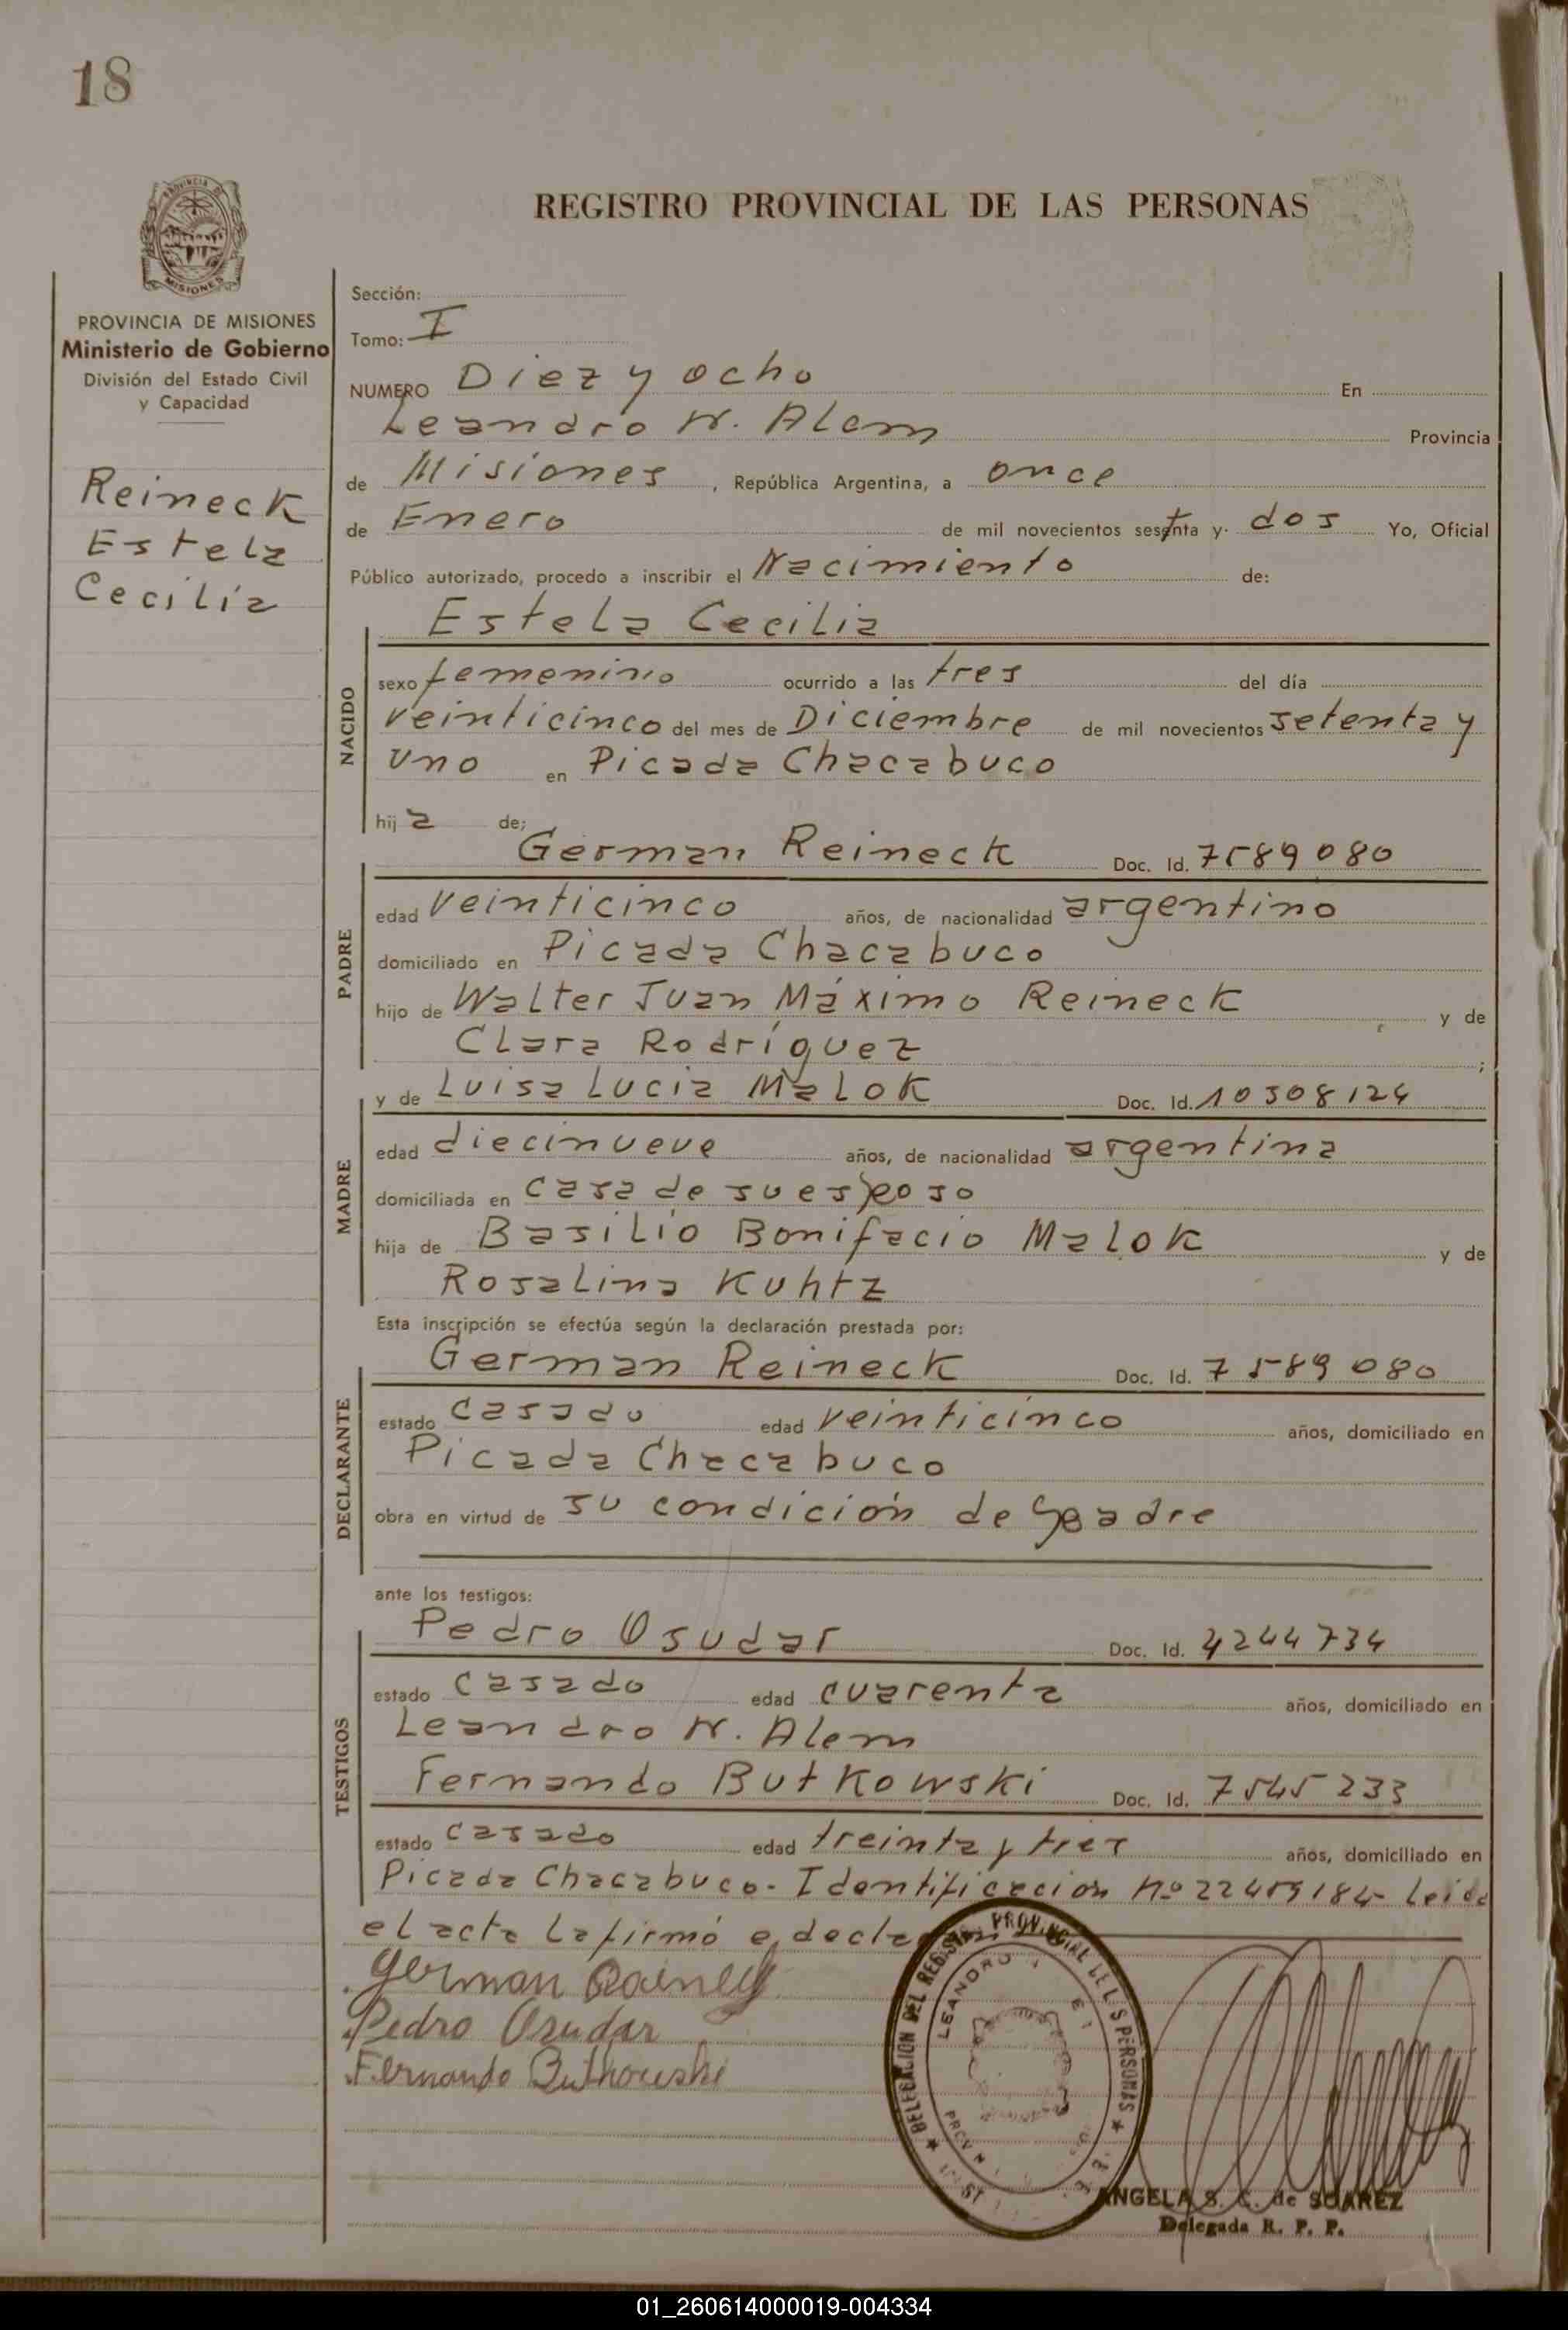 18
REGISTRO PROVINCIAL DE LAS PERSONAS
PROVINCIA DE MISIONES
Ministerio de Gobierno
División del Estado Civil
y Capacidad
Reineck
Estela
Cecilia
Sección:
Tomo: I
NUMERO Diez y ocho En
Leandro N. Alem Provincia
de Misiones, República Argentina, a once
de Enero de mil novecientos setenta y dos Yo, Oficial
Público autorizado, procedo a inscribir el Nacimiento de:
Estela Cecilia
NACIDO
sexo femenino ocurrido a las tres del día
veinticinco del mes de Diciembre de mil novecientos setenta y
uno en Picada Chacabuco
hij a de;
German Reineck Doc. Id. 7589080
PADRE
edad veinticinco años, de nacionalidad argentino
domiciliado en Picada Chacabuco
hijo de Walter Juan Máximo Reineck y de
Clara Rodríguez ;
y de Luisa Lucia Malok Doc. Id. 10308124
MADRE
edad diecinueve años, de nacionalidad argentina
domiciliada en casa de su esposo
hija de Basilio Bonifacio Malok y de
Rosalina Kuhtz
Esta inscripción se efectúa según la declaración prestada por:
German Reineck Doc. Id. 7589080
DECLARANTE
estado casado edad veinticinco años, domiciliado en
Picada Chacabuco
obra en virtud de su condición de padre
ante los testigos:
Pedro Osudar Doc. Id. 4244734
TESTIGOS
estado casado edad cuarenta años, domiciliado en
Leandro N. Alem
Fernando Butkowski Doc. Id. 7545233
estado casado edad treinta y tres años, domiciliado en
Picada Chacabuco- Identificación Nº 22459184- Leida
el acta la firmó e
German Reineck
Pedro Osudar
Fernando Buthowski
DELEGACION DEL REGISTRO PROVINCIAL DE LAS PERSONAS
LEANDRO
ANGELA S. C. de SOAREZ
Delegada R. P. P.
01_260614000019-004334